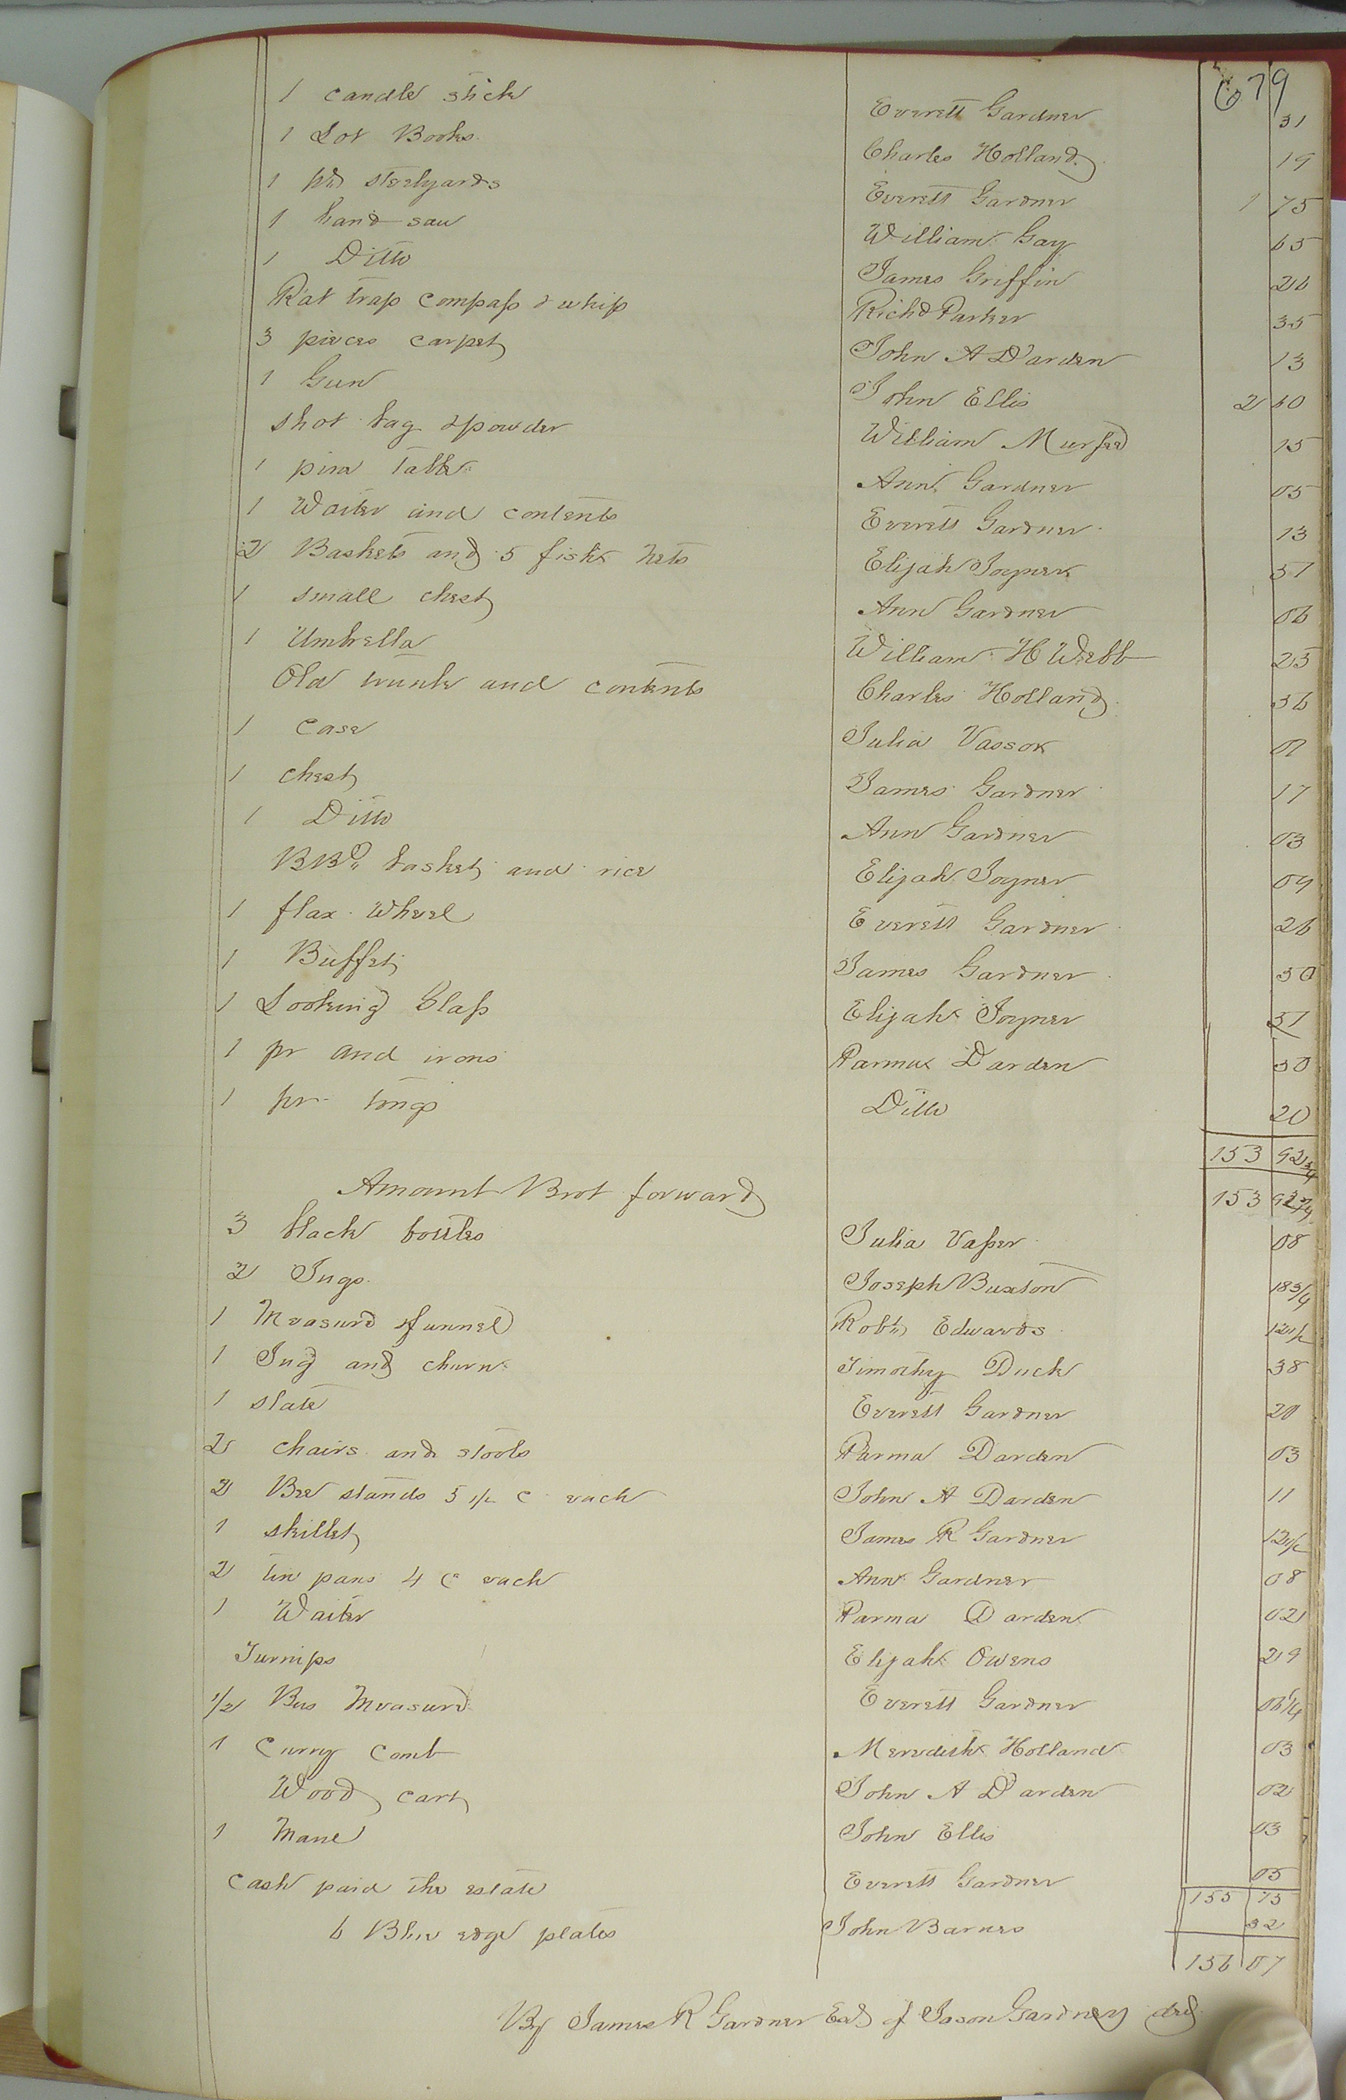 679
1 candle stick Everett Gardner 31
1 Lot Books Charles Holland 19
1 pr steelyards Everett Gardner 1 75
1 hand saw William Gay 65
1 Ditto James Griffin 26
Rat trap compass & whip Richd Parker 35
3 pieces carpet John A Darden 13
1 Gun John Ellis 2 60
shot bag & powder William Murfee 15
1 pine table Ann Gardner 05
1 Waiter and contents Everett Gardner 13
2 Baskets and 5 fish nets Elijah Joyner 51
1 small chest Ann Gardner 06
1 Umbrella William H Webb 25
Old trunk and contents Charles Holland 36
1 case Julia Vassor 07
1 chest James Gardner 17
1 Ditto Ann Gardner 03
basket and rice Elijah Joyner 09
1 flax Wheel Everett Gardner 26
1 Buffet James Gardner 50
1 Looking Glass Elijah Joyner 51
1 pr and irons Parma Darden 30
1 pr tongs Ditto 20
153 92 3/4
Amount Brot forward 153 92 3/4
3 black bottles Julia Vasser 08
2 Jugs Joseph Buxton 18 3/4
1 Measure & funnel Robt Edwards 12 1/2
1 Jug and churn Timothy Duck 38
1 slate Everett Gardner 20
2 chairs and stools Parma Darden 03
2 Bee stands 5 1/2 c each John A Darden 11
1 skillet James R Gardner 12 1/2
2 tin pans 4 c each Ann Gardner 08
1 Waiter Parma Darden 021
Turnips Elijah Owens 219
1/2 Bus Measure Everett Gardner 06 1/4
1 curry comb Meredith Holland 03
Wood cart John A Darden 02
1 Mane John Ellis 03
cash paid the estate Everett Gardner 05
155 75
6 Blue edge plates John Barnes 32
156 07
By James R Gardner Exd of Jason Gardner decd